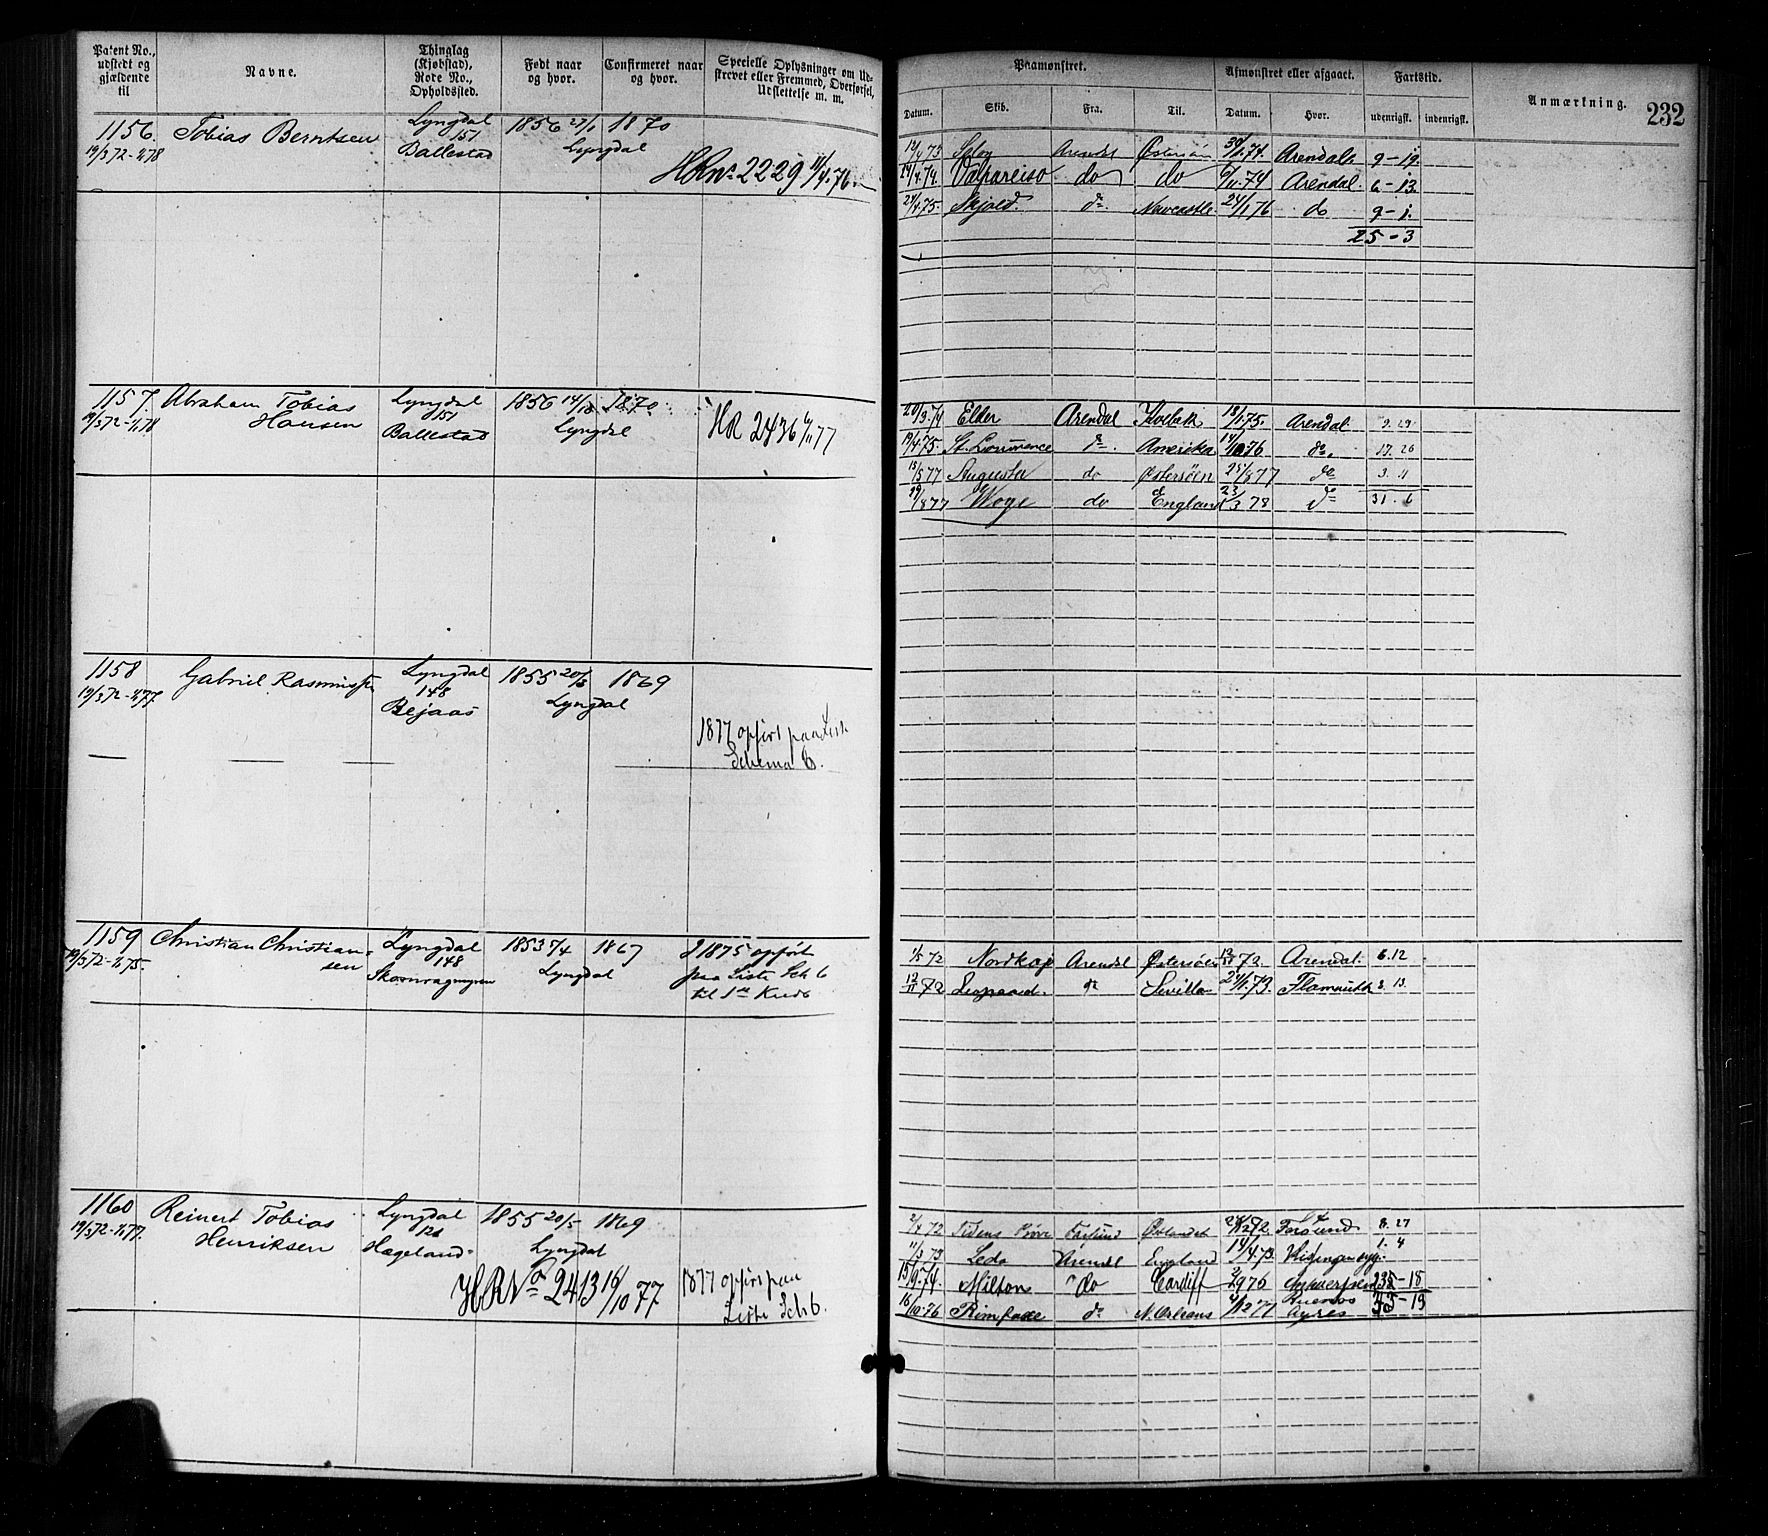 Patent No., udstedt og gjældende til
Navne.
Thinglag (Kjøbstad), Rode No., Opholdssted.
Født naar og hvor.
Confirmeret naar og hvor.
Specielle Oplysninger om Udskrevet eller Fremmed, Overførsel, Udslettelse m. m.
Paamønstret.
Afmønstret eller afgaaet.
Fartstid.
Anmærkning.
232
Datum.
Skib.
Fra.
Til.
Datum.
Hvor.
udenrigsk.
indenrigsk.
1156. Tobias Berntsen Lyngdal 1856 27/1 1870
19/3 72-1/1 78 151 Lyngdal
Ballestad
HR No 2229 11/4 76.
Arendal Østersjön Arendal 9-19
24/4.74. Valpareiso do do 6/11.74 Arendal. 6-13
24/4.75. Skjold. do Newcastle 24/1 76 do 9-1.
25-3
1157. Abraham Tobias Hansen Lyngdal 1856 14/10 1870
19/3 72-1/1 78 151 Lyngdal
Ballestad
HR 2436 6/11 77
20/9.74 Elder Arendal 18/1.75. Arendal. 9.29
19/4.75 St. Lourrence do. Amerika 14/10 76 do. 17.26
18/5 77 Augusta do Østersøen 25/8 77 do 3.11
29/8 77 Woge do England 23/3 78 do 31.6
1158 Gabriel Rasmussen Lyngdal 1855 20/3 1869
19/3 72-1/1 77. 148 Lyngdal
Bejaas
1877 opført paa Liste
Schema 6.
1159 Christian Christiansen Lyngdal 1853 7/4 1867
19/3 72-1/1 75. 148 Lyngdal
J 1875 opført
paa Liste Sch 6
1/5 72 Nordkap Arendal Østersøen 13/11 72. Arendal. 6.12
12/11 72 Leopard. do Sevilla 24/1.73. 2.13
1160 Reinert Tobias Henriksen Lyngdal 1855 20/5 1869
19/3 72-1/1 77. 126 Lyngdal
Hægeland
HR No 2413 16/10 77
1877 opført paa
Liste Sch 6.
2/4 72 Tidens Prøve Farsund Østlandet 8.27
11/3 73 Leda Arendal England 14/4.73. 1.4
15/9.74. Milton do Cardiff Antwerpen 235-18
16/10.76 Rimfaxe do N. Orleans 4/12 77 Buenos Ayres